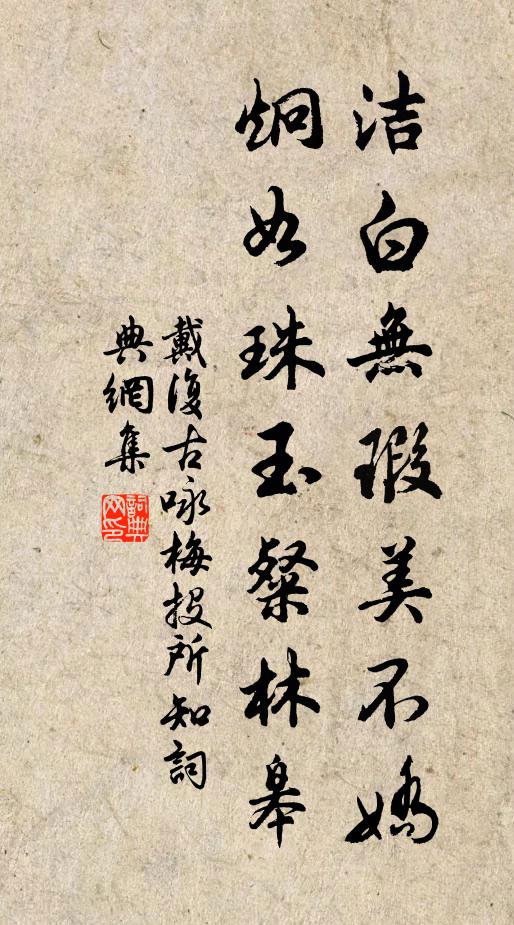 洁白無瑕美不嬌
炯如珠玉粲林皋
戴復古咏梅投所知詞
典網集
詞典网印